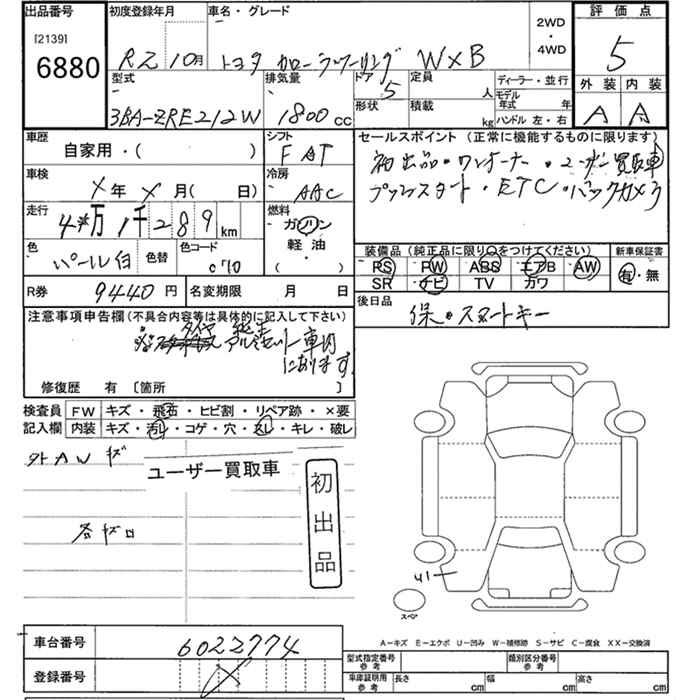 出品番号 初度登録年月 車名・グレード 2WD・4WD 評価点
[2139]
6880
R2 10月 トヨタ カローラツーリング W×B
5
型式 排気量 ドア 定員 人 ディーラー・並行 外装 内装
3BA-ZRE212W 1800 cc 5
形状 積載 kg モデル年式 年
ハンドル 左・右
A A
車歴 シフト セールスポイント (正常に機能するものに限ります)
自家用・( ) FAT
初出品・ワンオーナー・ユーザー買取車
車検 冷房
X年X月(日) AAC
プッシュスタート・ETC・バックカメラ
走行 燃料
4万1千289km ガソリン
軽油
( )
色 色替 色コード
パール白 070
装備品(純正品に限り○をつけてください) 新車保証書
PS PW ABS エアB AW 有・無
SR ナビ TV カワ
R券 9440円 名変期限 月 日
後日品 保・スマートキー
注意事項申告欄(不具合内容等は具体的に記入して下さい)
車内
にあります。
修復歴 有 〔箇所 〕
検査員 FW キズ・飛石・ヒビ割・リペア跡・×要
記入欄 内装 キズ・汚レ・コゲ・穴・スレ・キレ・破レ
外AWキズ
ユーザー買取車
初出品
各キズ
U1
スペア
車台番号 6022774
A−キズ E−エクボ U−凹み W−補修跡 S−サビ C−腐食 XX−交換済
登録番号 X
型式指定番号 参考 類別区分番号 参考
車庫証明用 参考 長さ cm 幅 cm 高さ cm